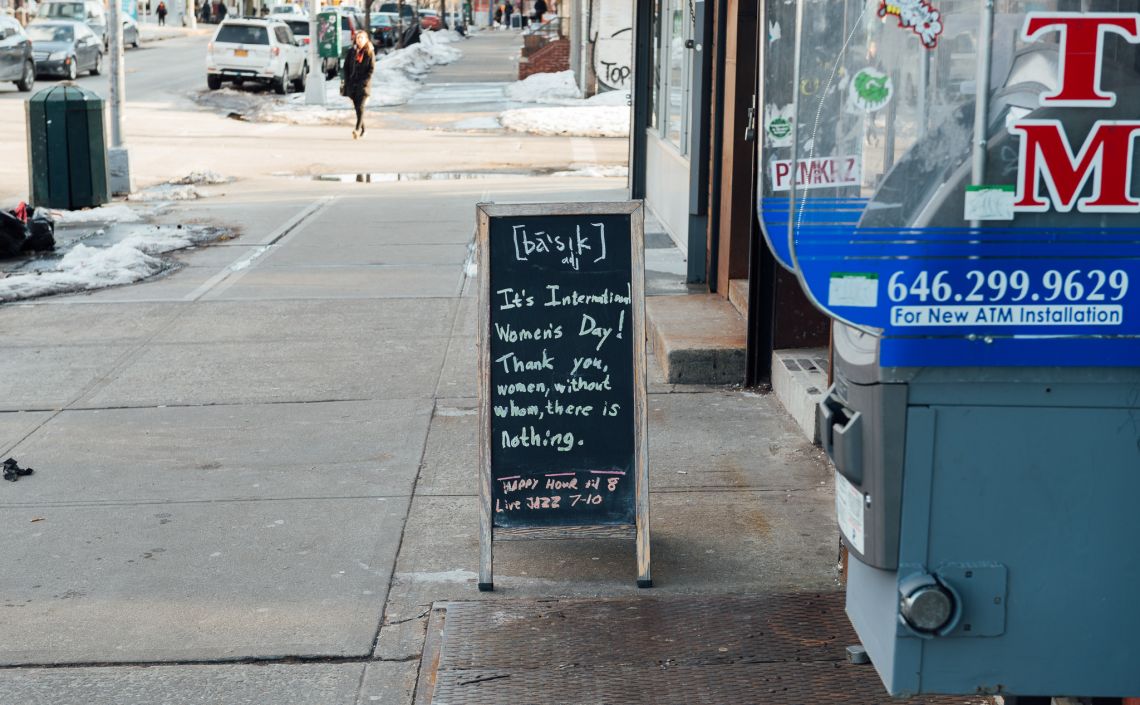 [bā'sik]
adj
It's International
Women's Day!
Thank you,
women, without
whom, there is
nothing.
HAPPY HOUR til 8
Live JAZZ 7-10
TOP
PTMKRZ
T
M
646.299.9629
For New ATM Installation